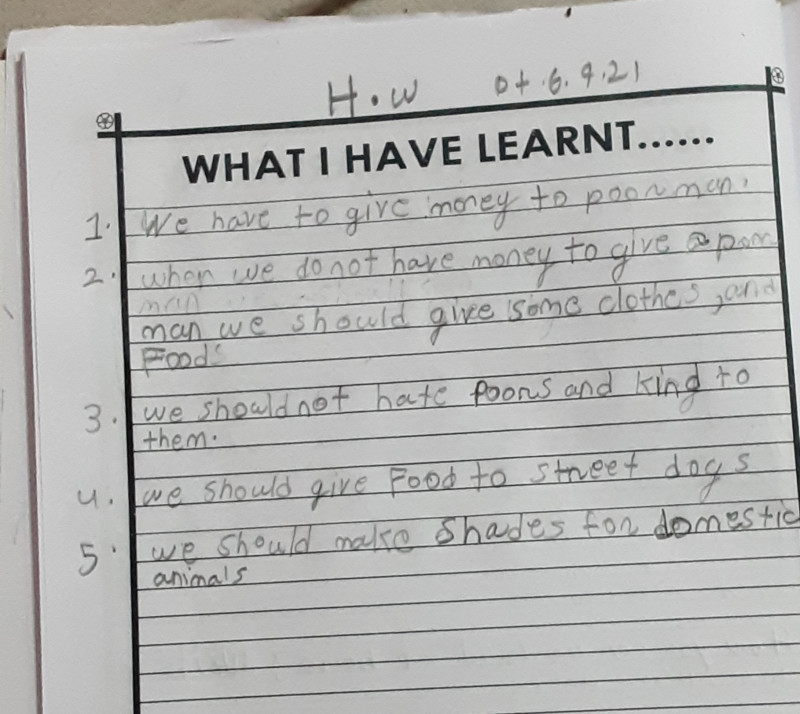 H.W Dt.6.9.21
WHAT I HAVE LEARNT......
1. We have to give money to poor man.
2. when we do not have money to give a poor
man
man we should give some clothes, and
Food.
3. we should not hate poors and king to
them.
4. we should give Food to street dogs
5. we should make shades for domestic
animals